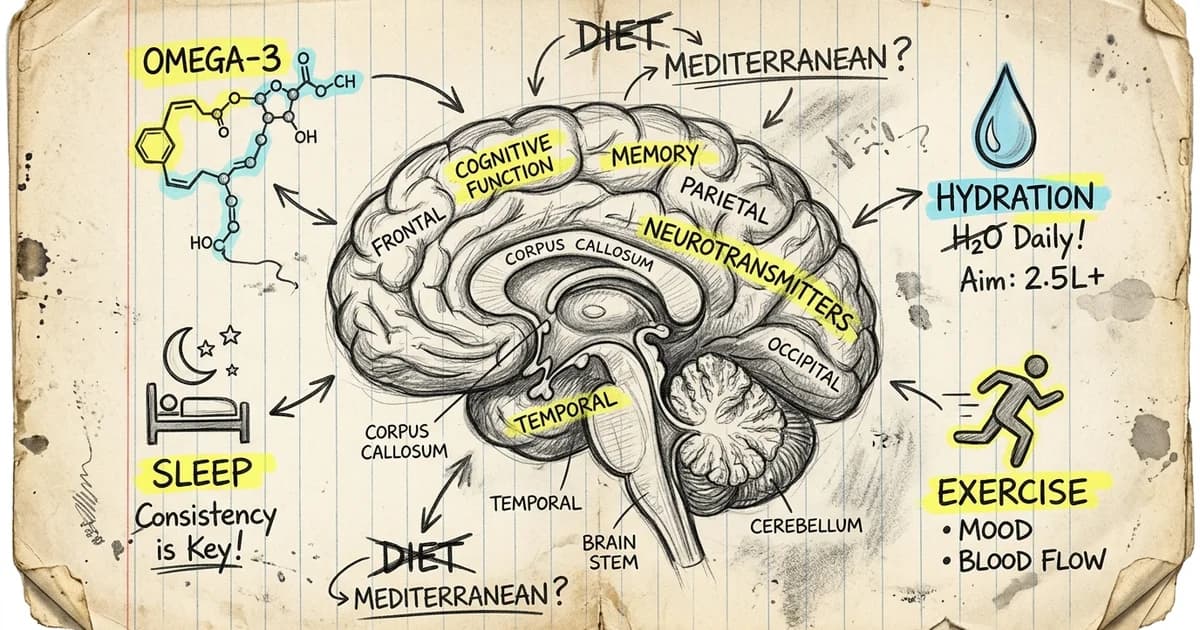 OMEGA-3
O
O
O
CH
O
O
OH
HO
DIET
MEDITERRANEAN?
HYDRATION
H₂O Daily!
Aim: 2.5L+
COGNITIVE
FUNCTION
MEMORY
PARIETAL
FRONTAL
CORPUS CALLOSUM
NEUROTRANSMITTERS
OCCIPITAL
TEMPORAL
CORPUS
CALLOSUM
TEMPORAL
BRAIN
STEM
CEREBELLUM
SLEEP
Consistency
is Key!
DIET
MEDITERRANEAN?
EXERCISE
• MOOD
• BLOOD FLOW